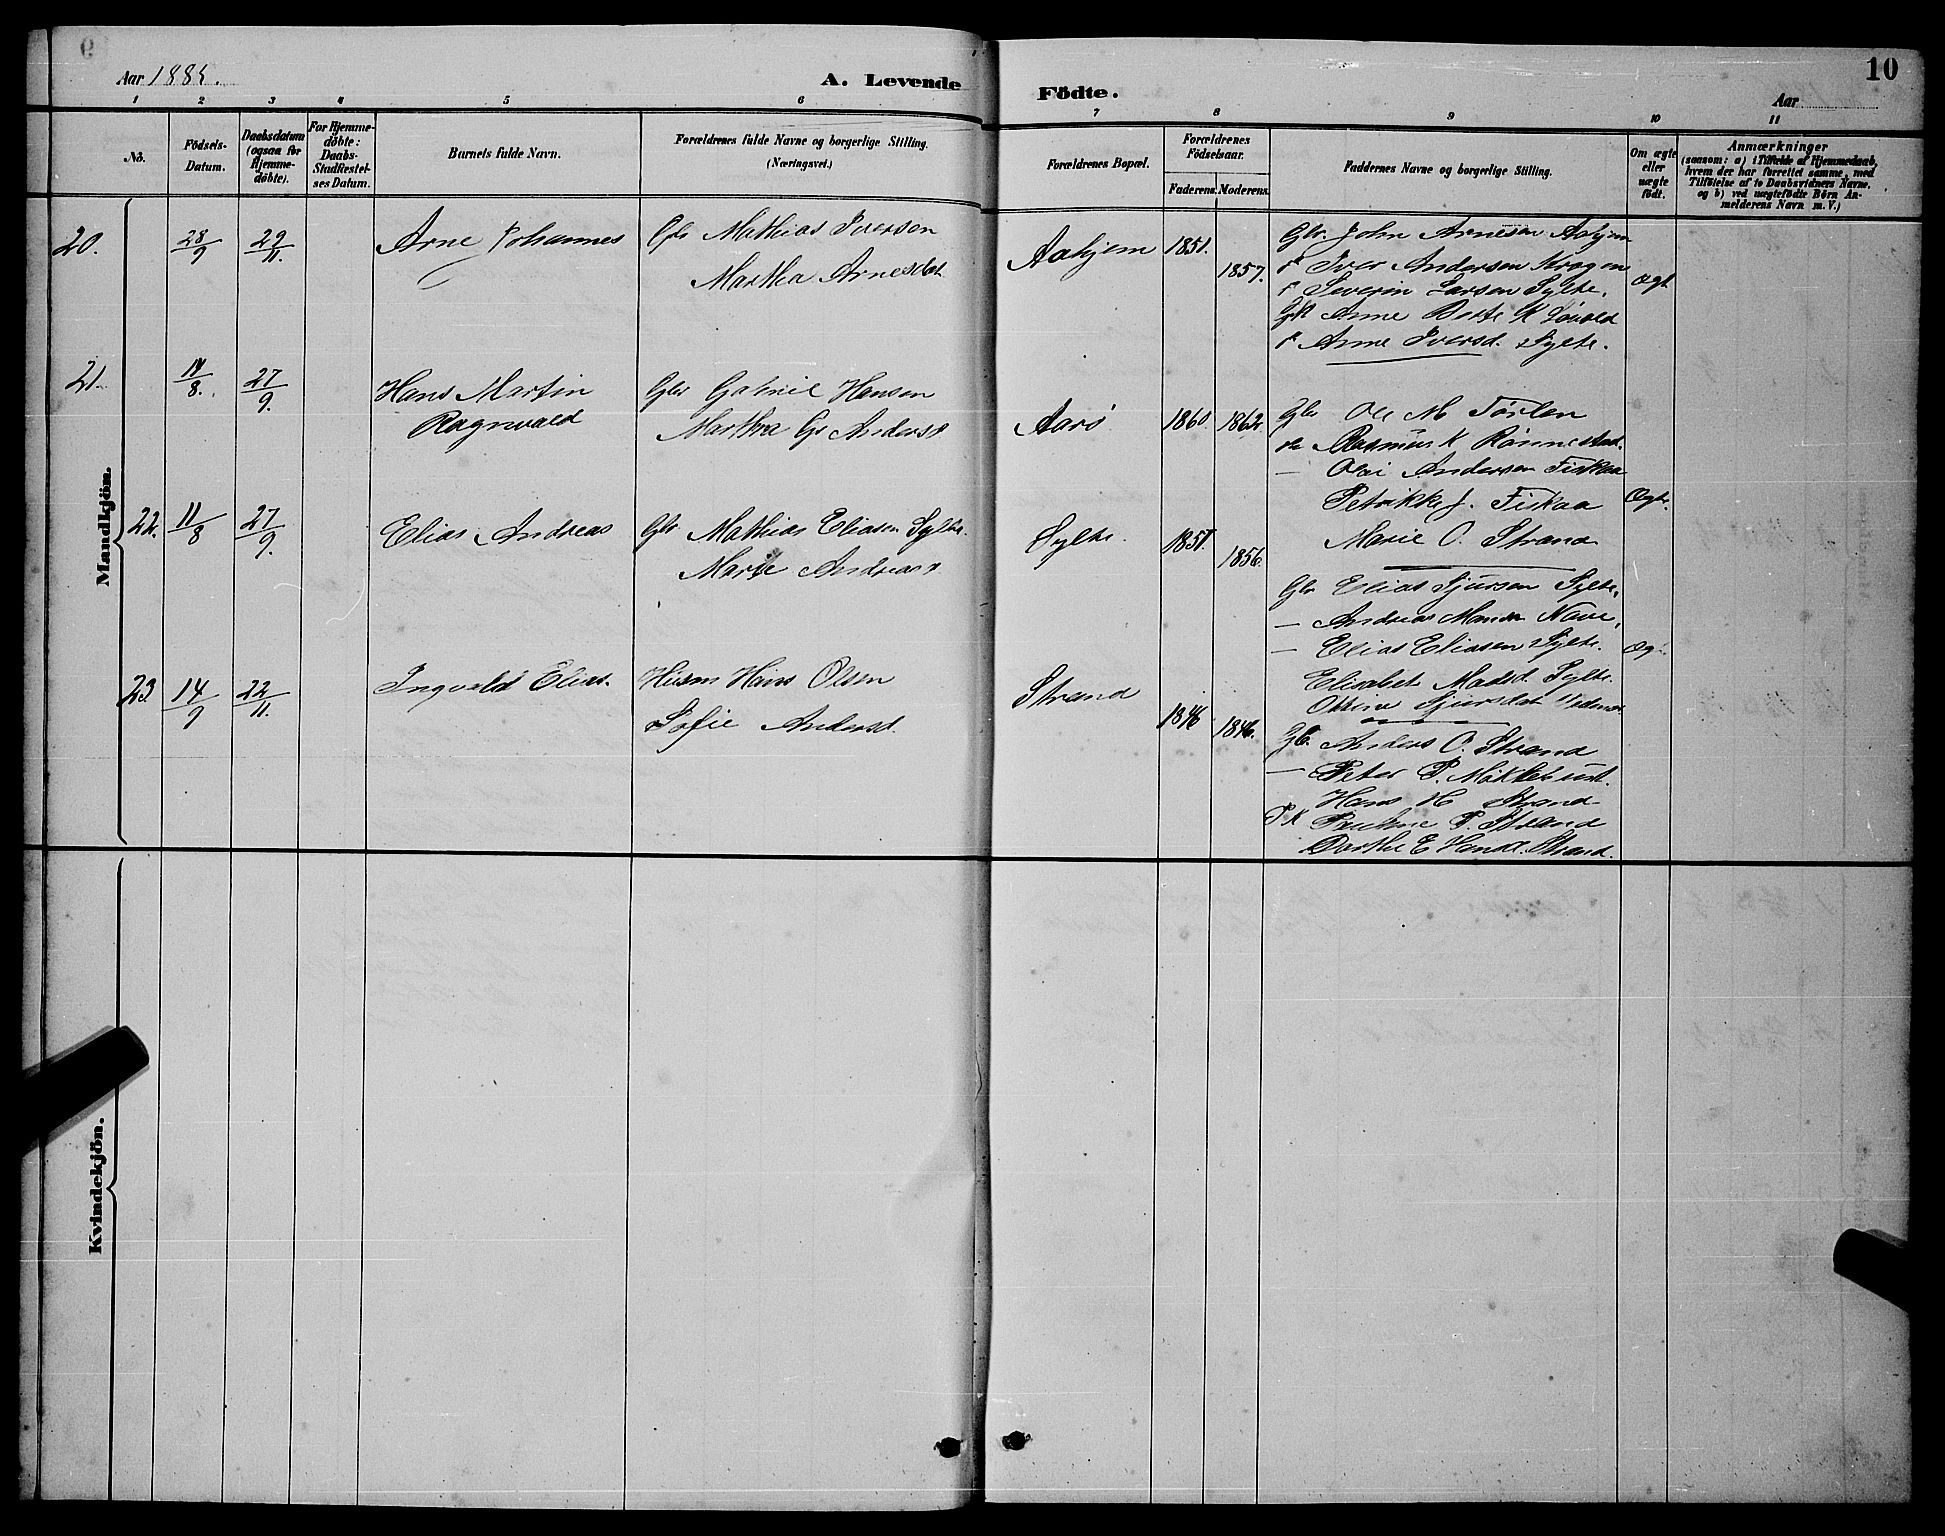 Aar 1885.
A. Levende
Födte.
10
Aar
1 2 3 4 5 6 7 8 9 10 11
No.
Födsels-
Datum.
Daabsdatum
(ogsaa for
Hjemme-
döbte).
For Hjemme-
döbte:
Daabs-
Stadfæstel-
ses Datum.
Barnets fulde Navn.
Forældrenes fulde Navne og borgerlige Stilling.
(Næringsvei.)
Forældrenes Bopæl.
Forældrenes
Födselsaar.
Faderens. Moderens.
Faddernes Navne og borgerlige Stilling.
Om ægte
eller
uægte
födt.
Anmærkninger
(saasom: a) i Tilfælde af Hjemmedaab,
hvem der har forrettet samme, med
Tilföielse af to Daabsvidners Navne.
og b) ved uægtefödte Börn An-
melderens Navn m. V.)
Mandkjön.
20. 28/9 29/11. Arne Johannes
Gbr Mathias Iversen
Martha Arnesdat
Aahjem 1851. 1857.
Gbr. John Arnesen Aahjem
Iver Andersen Krogen
Severin Larsen Sylte.
Anne Berte K Løvold
Anne Iversd. Sylte.
Ægt
21. 27/9. Hans Martin
Ragnvald
Gbr Gabriel Hansen
Martha Andersd
Aarö 1860. 1862.
Gbr Ole M Torlen
Rasmus K Rönnestad.
— Olai Andersen Fiskaa
Petrikke J. Fiskaa
Marie O. Strand
Ægte.
22. 11/8 27/9. Elias Andreas
Gbr Mathias Eliasen Sylte.
Marie Andreasd
Sylte. 1851. 1856.
Gbr Elias Sjursen Sylte.
— Andreas Nave,
— Elias Eliasen Sylte.
Elisabet Madsd Sylte.
Sjursdat
Ægt.
23. 14/9 22/11. Ingvald Elias.
Husm Hans Olsen
Sofie Andersd.
Strand 1846 1846.
Gb. Anders O. Strand
— Peter P. Mökkelbust.
Hans H Strand
P K Pauline P. Strand
Dorthe E Hansd. Strand.
Kvindekjön.